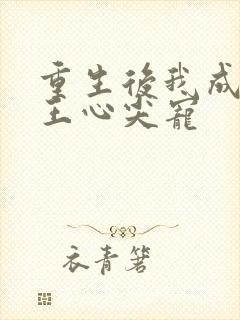 重生後我成
王心尖寵
衣青箬